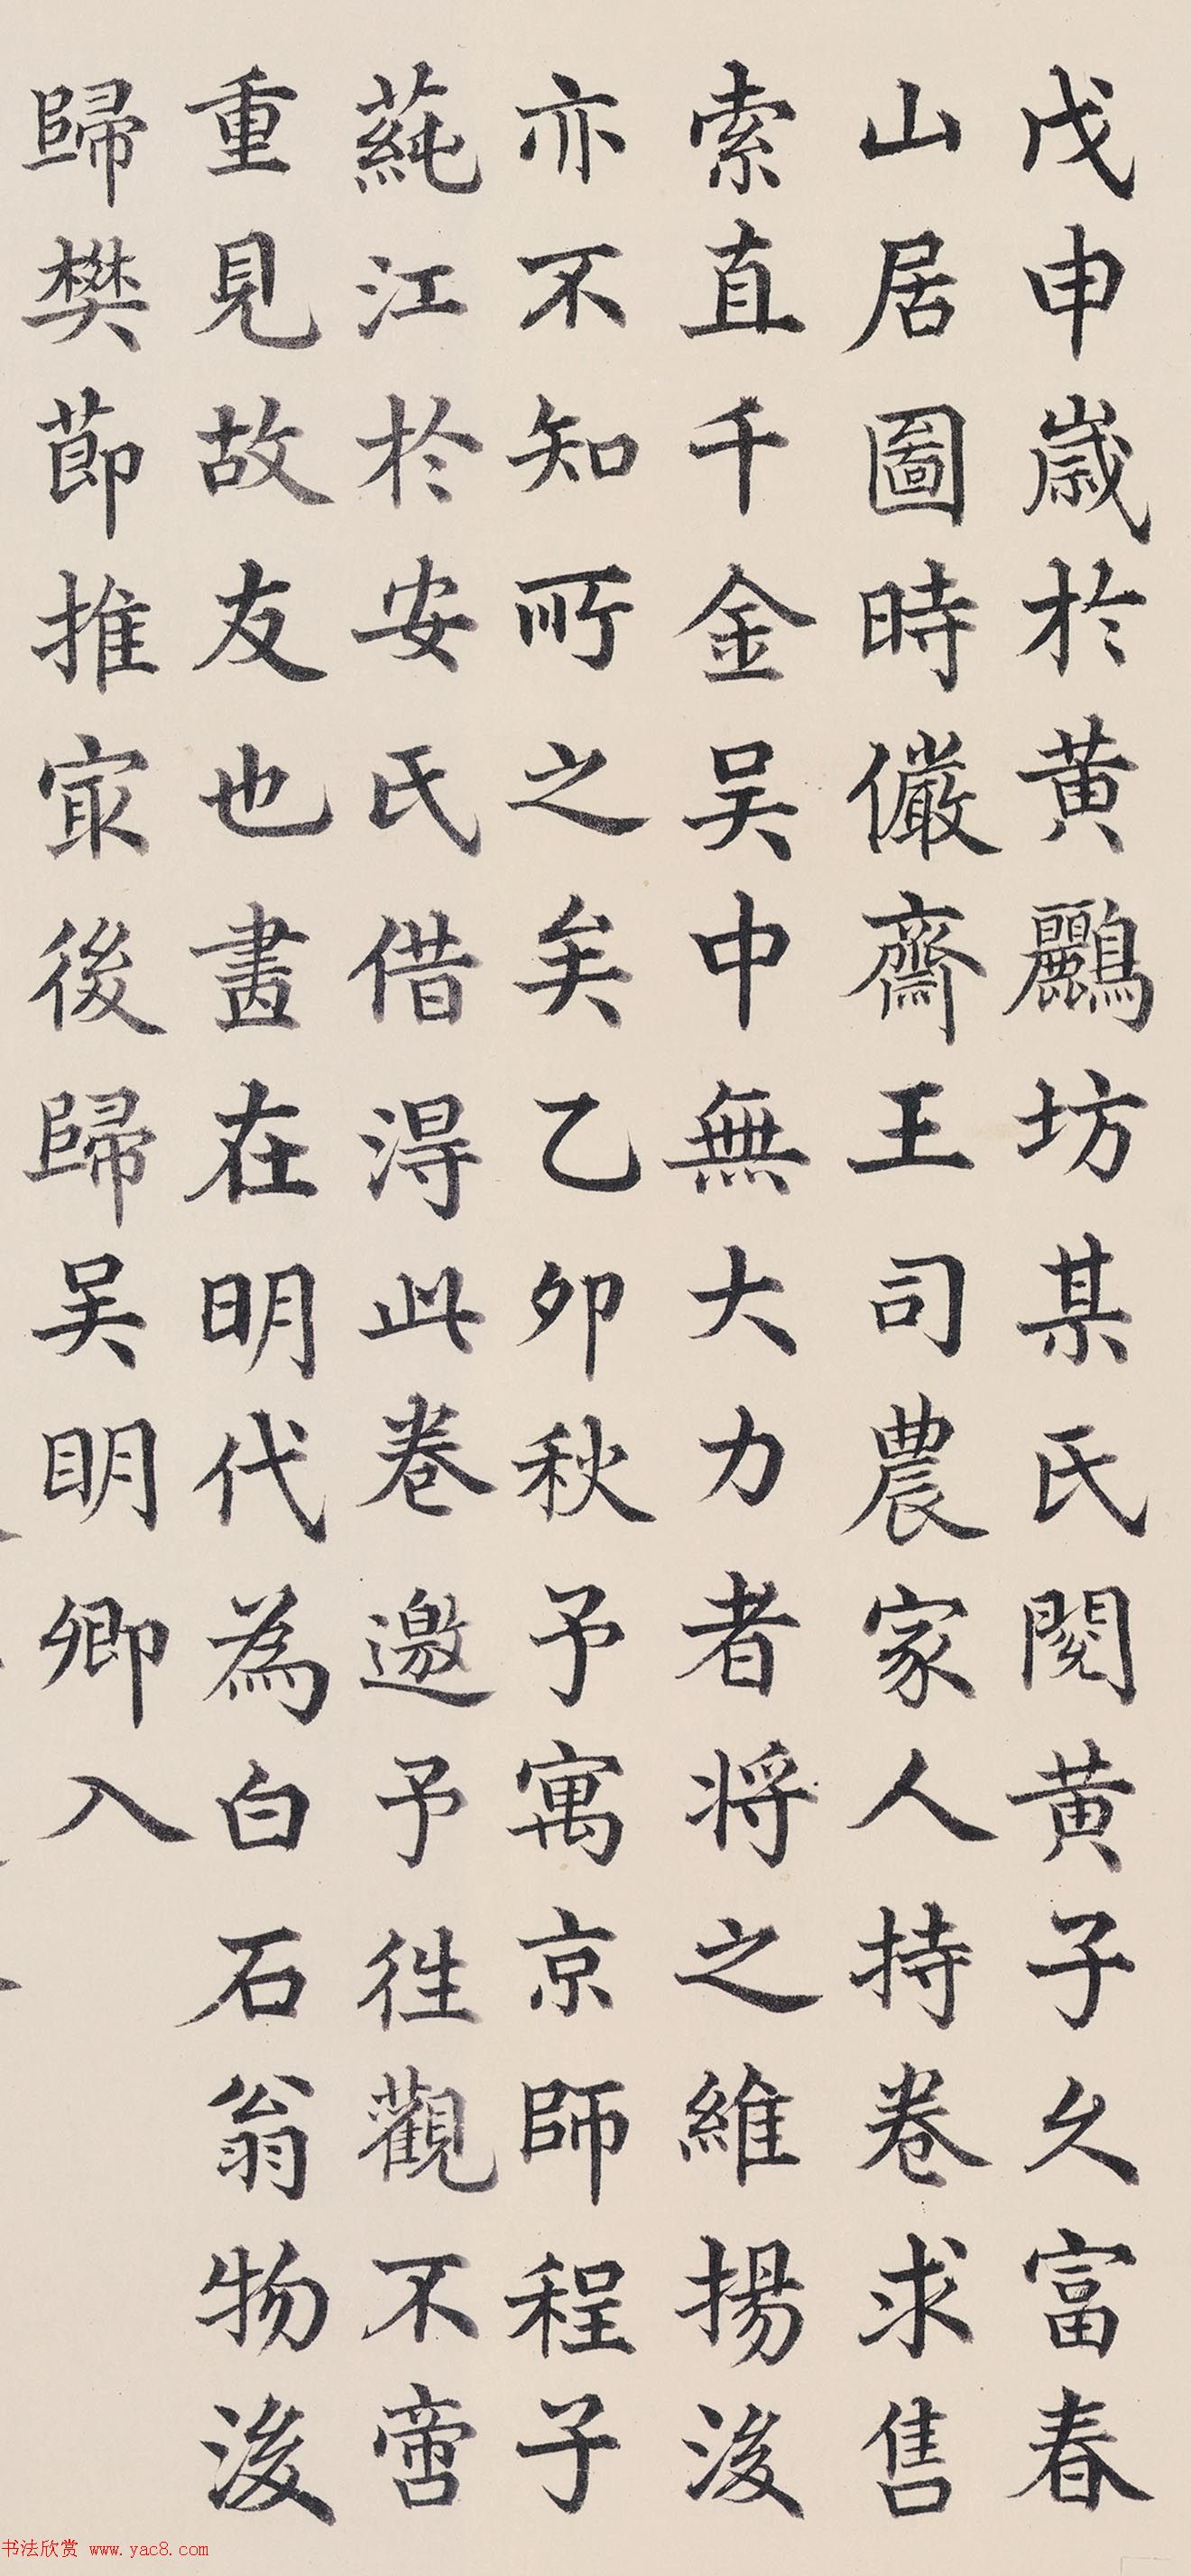 戊申歲於黃鸝坊某氏閱黃子久富春
山居圖時儼齋王司農家人持卷求售
索直千金吳中無大力者將之維揚後
亦不知所之矣乙卯秋予寓京師程子
蒓江於安氏借得此卷邀予往觀不啻
重見故友也畫在明代為白石翁物後
歸樊節推寂後歸吳明卿入
书法欣赏 www.yac8.com